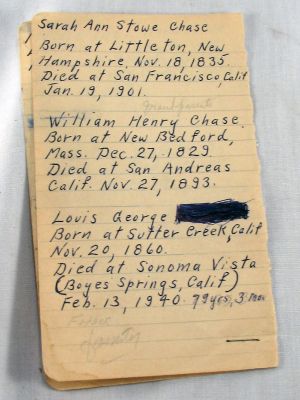 Sarah Ann Stowe Chase
Born at Littleton, New
Hampshire, Nov. 18, 1835.
Died at San Francisco, Calif
Jan. 19, 1901.
William Henry Chase.
Born at New Bedford,
Mass. Dec. 27, 1829.
Died at San Andreas
Calif. Nov. 27, 1893.
Louis George
Born at Sutter Creek, Calif
Nov. 20, 1860.
Died at Sonoma Vista
(Boyes Springs, Calif)
Feb. 13, 1940. 79 yrs, 3 mos
Father